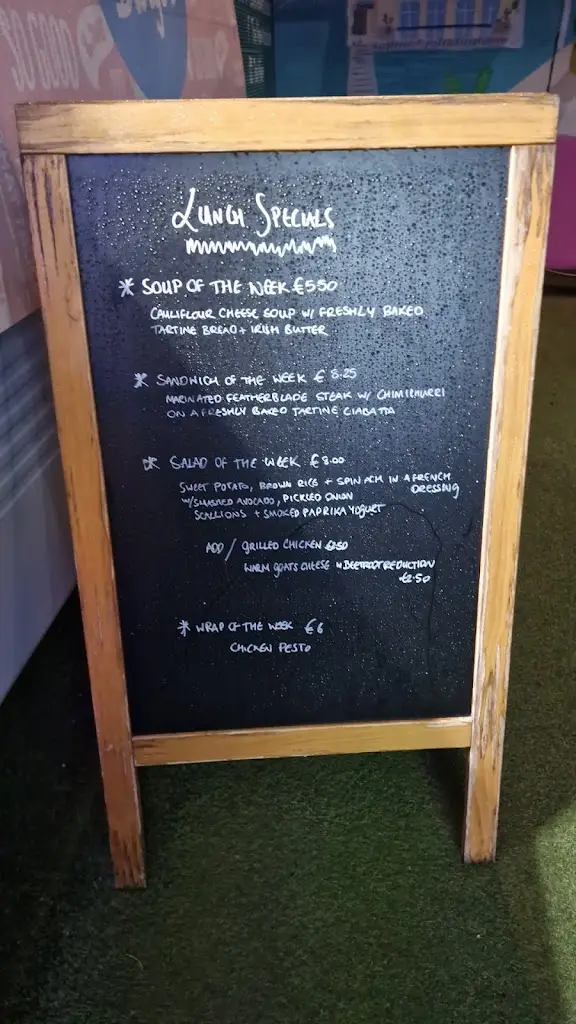 SO GOOD
LUNCH SPECIALS
* SOUP OF THE WEEK €5.50
CAULIFLOUR CHEESE SOUP W/ FRESHLY BAKED
TARTINE BREAD + IRISH BUTTER
* SANDWICH OF THE WEEK € 8.25
MARINATED FEATHERBLADE STEAK W/ CHIMICHURRI
ON A FRESHLY BAKED TARTINE CIABATTA
* SALAD OF THE WEEK €8.00
SWEET POTATO, BROWN RICE + SPINACH IN A FRENCH
DRESSING
W/ SMASHED AVOCADO, PICKLED ONION
SCALLIONS + SMOKED PAPRIKA YOGURT
ADD / GRILLED CHICKEN €2.50
WARM GOATS CHEESE W BEETROOT REDUCTION
€2.50
* WRAP OF THE WEEK €6
CHICKEN PESTO